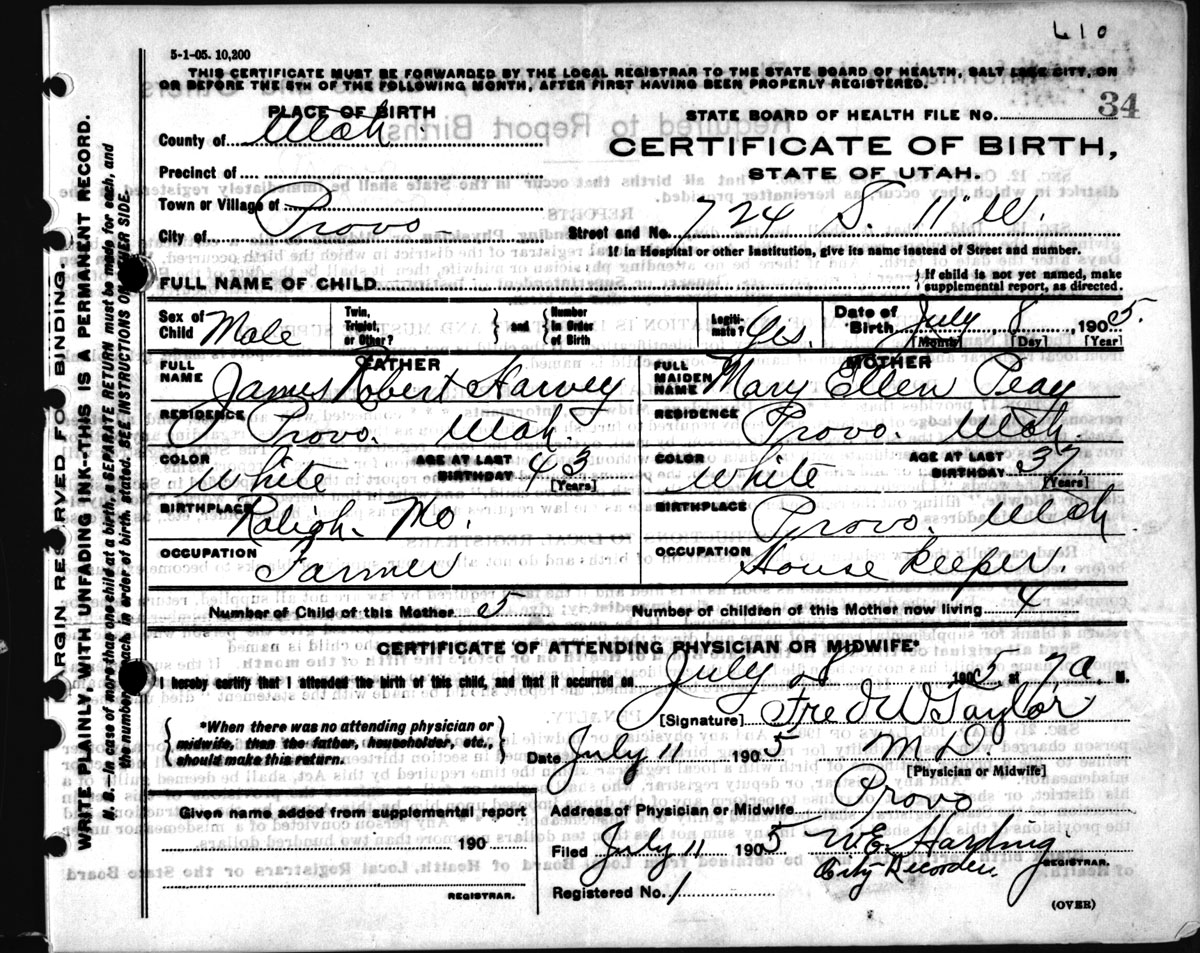 610
5-1-05. 10,200
THIS CERTIFICATE MUST BE FORWARDED BY THE LOCAL REGISTRAR TO THE STATE BOARD OF HEALTH, SALT LAKE CITY, ON
OR BEFORE THE 5TH OF THE FOLLOWING MONTH, AFTER FIRST HAVING BEEN PROPERLY REGISTERED.
PLACE OF BIRTH
STATE BOARD OF HEALTH FILE NO. 34
County of Utah.
CERTIFICATE OF BIRTH,
STATE OF UTAH.
Precinct of
Town or Village of
City of Provo
Street and No. 724 S. 11" W.
If in Hospital or other Institution, give its name instead of Street and number.
FULL NAME OF CHILD
{ If child is not yet named, make
supplemental report, as directed.
Sex of Child Male
Twin, Triplet, or Other? } and { Number in Order of Birth
Legitimate? Yes.
Date of Birth July 8, 1905.
[Month] [Day] [Year]
FATHER
FULL NAME James Robert Harvey
RESIDENCE Provo. Utah.
COLOR White
AGE AT LAST BIRTHDAY 43
[Years]
BIRTHPLACE Raligh. Mo.
OCCUPATION Farmer
MOTHER
FULL MAIDEN NAME Mary Ellen Peay
RESIDENCE Provo. Utah.
COLOR White
AGE AT LAST BIRTHDAY 37.
[Years]
BIRTHPLACE Provo. Utah.
OCCUPATION House keeper.
Number of Child of this Mother 5
Number of children of this Mother now living 4
CERTIFICATE OF ATTENDING PHYSICIAN OR MIDWIFE*
I hereby certify that I attended the birth of this child, and that it occurred on July 8 1905, at 7 a. M.
{ *When there was no attending physician or
midwife, than the father, householder, etc.,
should make this return. }
[Signature] Fred W Taylor
Date July 11 1905 M.D.
[Physician or Midwife]
Given name added from supplemental report
190
REGISTRAR.
Address of Physician or Midwife Provo
Filed July 11 1905 W.E. Harding
REGISTRAR.
City Recorder
Registered No. 1
(OVER)
MARGIN RESERVED FOR BINDING.
WRITE PLAINLY, WITH UNFADING INK--THIS IS A PERMANENT RECORD.
N.B.--in case of more than one child at a birth, a SEPARATE RETURN must be made for each, and
the number of each, in order of birth, stated. SEE INSTRUCTIONS ON OTHER SIDE.